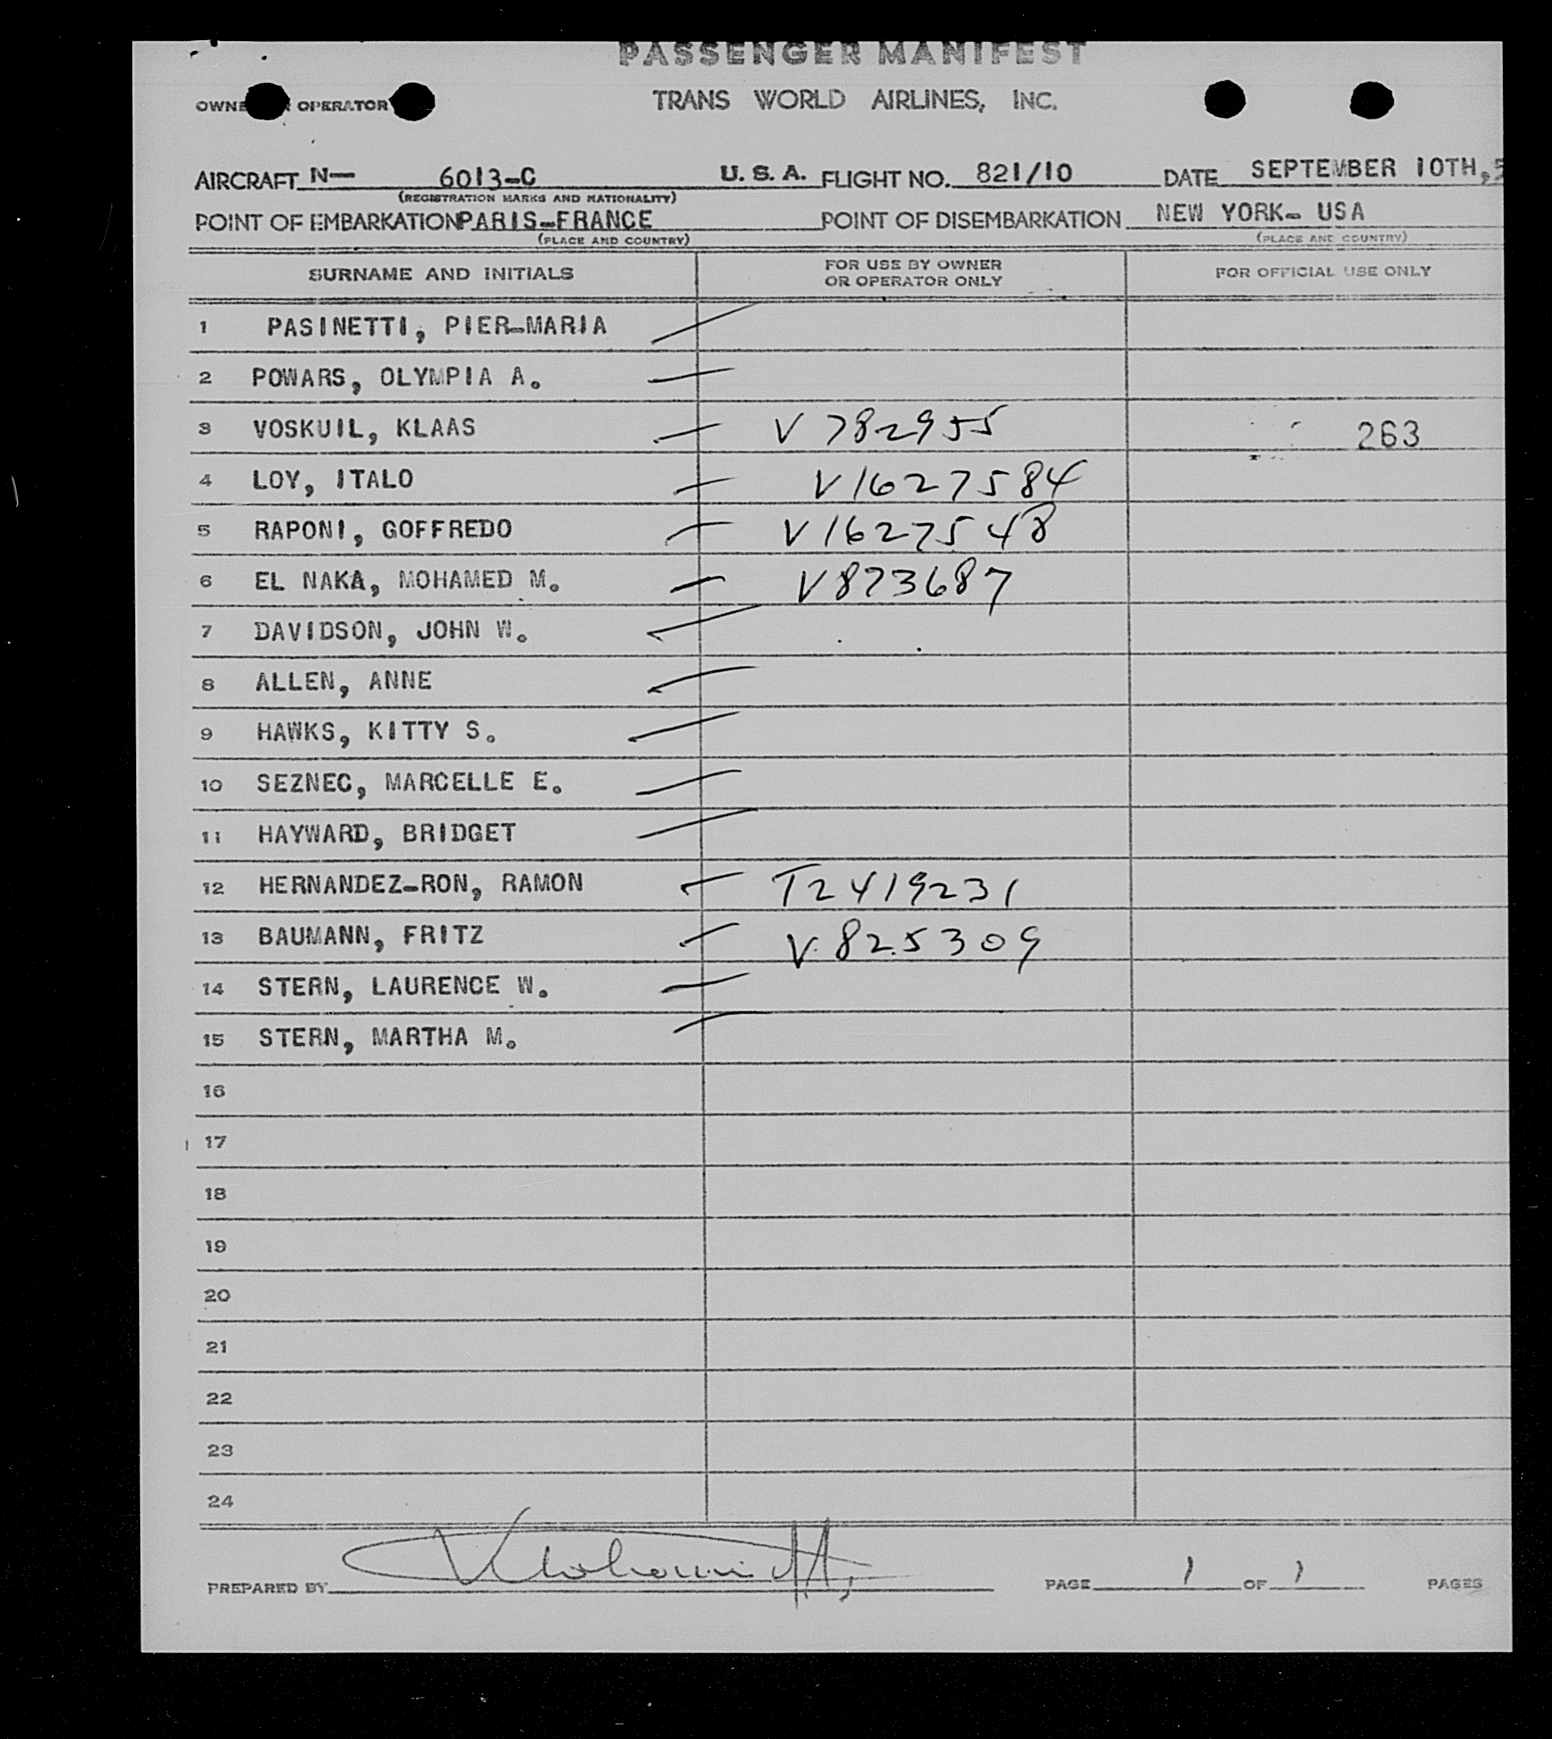 PASSENGER MANIFEST
OWNE OPERATOR TRANS WORLD AIRLINES, INC.
AIRCRAFT N— 6013-C U. S. A. FLIGHT NO. 821/10 DATE SEPTEMBER 10TH, 5
(REGISTRATION MARKS AND NATIONALITY)
POINT OF EMBARKATION PARIS-FRANCE POINT OF DISEMBARKATION NEW YORK- USA
(PLACE AND COUNTRY) (PLACE AND COUNTRY)
SURNAME AND INITIALS FOR USE BY OWNER OR OPERATOR ONLY FOR OFFICIAL USE ONLY
1 PASINETTI, PIER-MARIA
2 POWARS, OLYMPIA A.
3 VOSKUIL, KLAAS V 782955 263
4 LOY, ITALO V1627584
5 RAPONI, GOFFREDO V1627548
6 EL NAKA, MOHAMED M. V873687
7 DAVIDSON, JOHN W.
8 ALLEN, ANNE
9 HAWKS, KITTY S.
10 SEZNEC, MARCELLE E.
11 HAYWARD, BRIDGET
12 HERNANDEZ-RON, RAMON T2419231
13 BAUMANN, FRITZ V.825309
14 STERN, LAURENCE W.
15 STERN, MARTHA M.
16
17
18
19
20
21
22
23
24
PREPARED BY PAGE 1 OF 1 PAGES